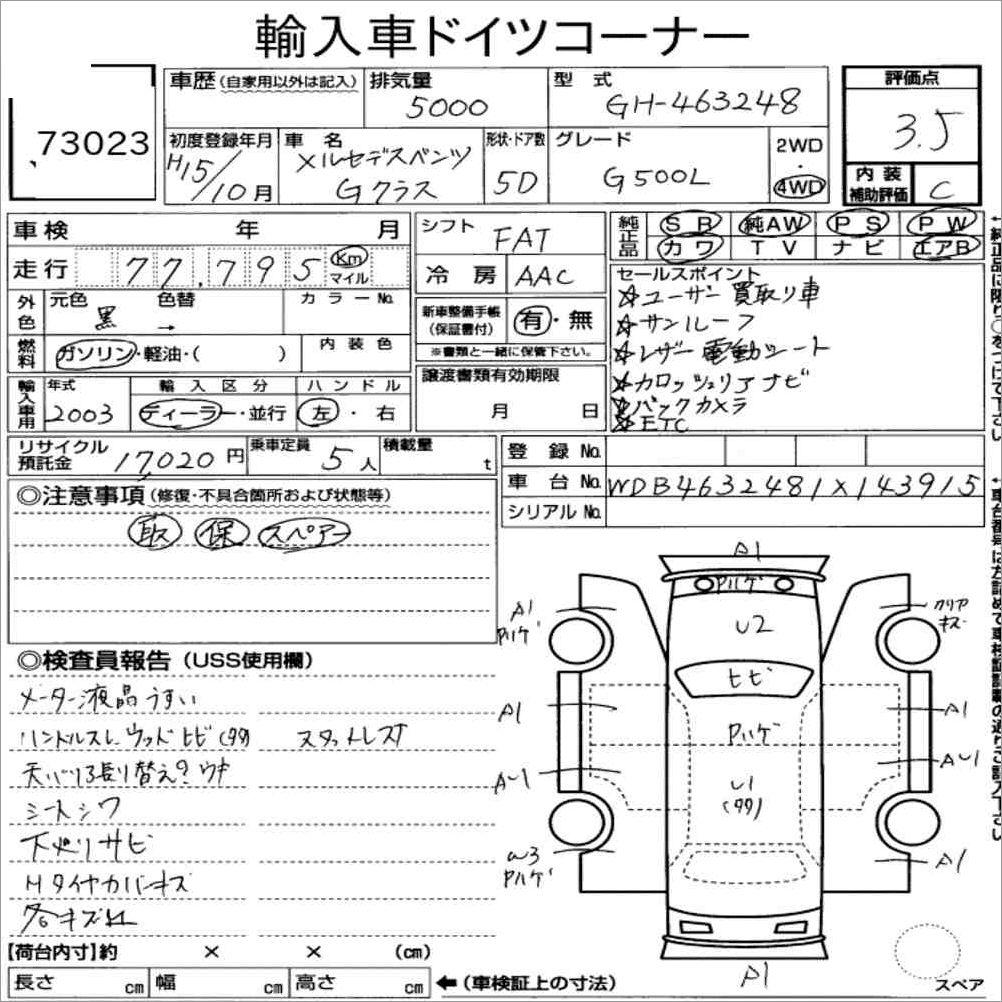 輸入車ドイツコーナー
73023
車歴(自家用以外は記入)
排気量
5000
型式
GH-463248
評価点
3.5
初度登録年月
H15/10月
車名
メルセデスベンツ
Gクラス
形状・ドア数
5D
グレード
G500L
2WD
・
4WD
内装
補助評価
C
車検 年 月
走行 77,795 Km
マイル
シフト FAT
冷房 AAC
純正品
SR 純AW PS PW
カワ TV ナビ エアB
外色
元色 色替 カラーNo.
黒 →
新車整備手帳
(保証書付)
有・無
※書類と一緒に保管下さい。
セールスポイント
☆ユーザー買取り車
☆サンルーフ
☆レザー電動シート
☆カロッツェリアナビ
☆バックカメラ
☆ETC
燃料
ガソリン・軽油・( )
内装色
輸入車用
年式
2003
輸入区分
ディーラー・並行
ハンドル
左・右
譲渡書類有効期限
月 日
リサイクル
預託金 17020円
乗車定員
5人
積載量
t
登録No.
車台No. WDB4632481X143915
シリアルNo.
◎注意事項(修復・不具合箇所および状態等)
取 保 スペアー
◎検査員報告(USS使用欄)
メーター液晶うすい
ハンドルスレ ウッドヒビ(99) スタットレス
天バリ張り替え?ウキ
シートシワ
下廻りサビ
Hタイヤカバーキズ
各キズ
A1
Pハゲ
A1
Pハゲ
カリア
キズ
U2
ヒビ
A1
A1
Pハゲ
AU1
AU1
U1
(99)
W3
Pハゲ
A1
A1
スペア
【荷台内寸】約 × × (cm)
長さ cm 幅 cm 高さ cm ←(車検証上の寸法)